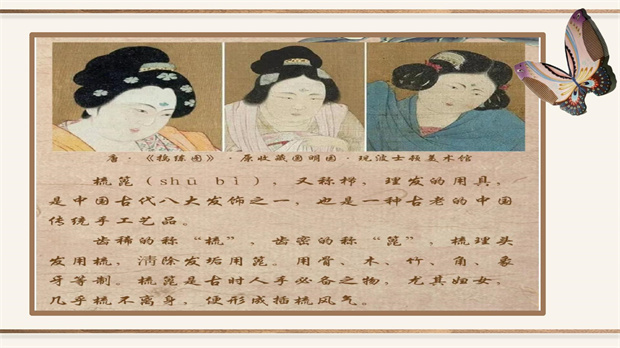 唐·《捣练图》·原收藏圆明园·现波士顿美术馆
梳篦（shū bì），又称栉，理发的用具，
是中国古代八大发饰之一，也是一种古老的中国
传统手工艺品。
齿稀的称“梳”，齿密的称“篦”，梳理头
发用梳，清除发垢用篦。用骨、木、竹、角、象
牙等制。梳篦是古时人手必备之物，尤其妇女，
几乎梳不离身，便形成插梳风气。